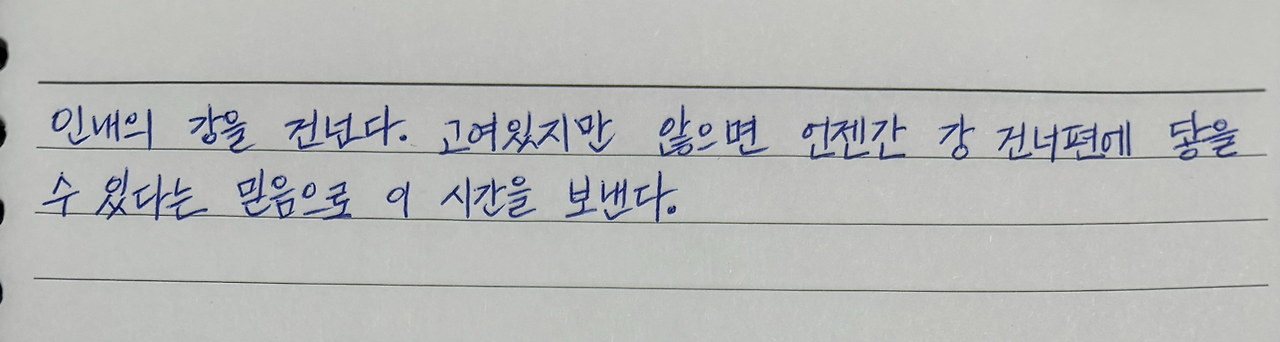 인내의 강을 건넌다. 고여있지만 않으면 언젠간 강 건너편에 닿을
수 있다는 믿음으로 이 시간을 보낸다.